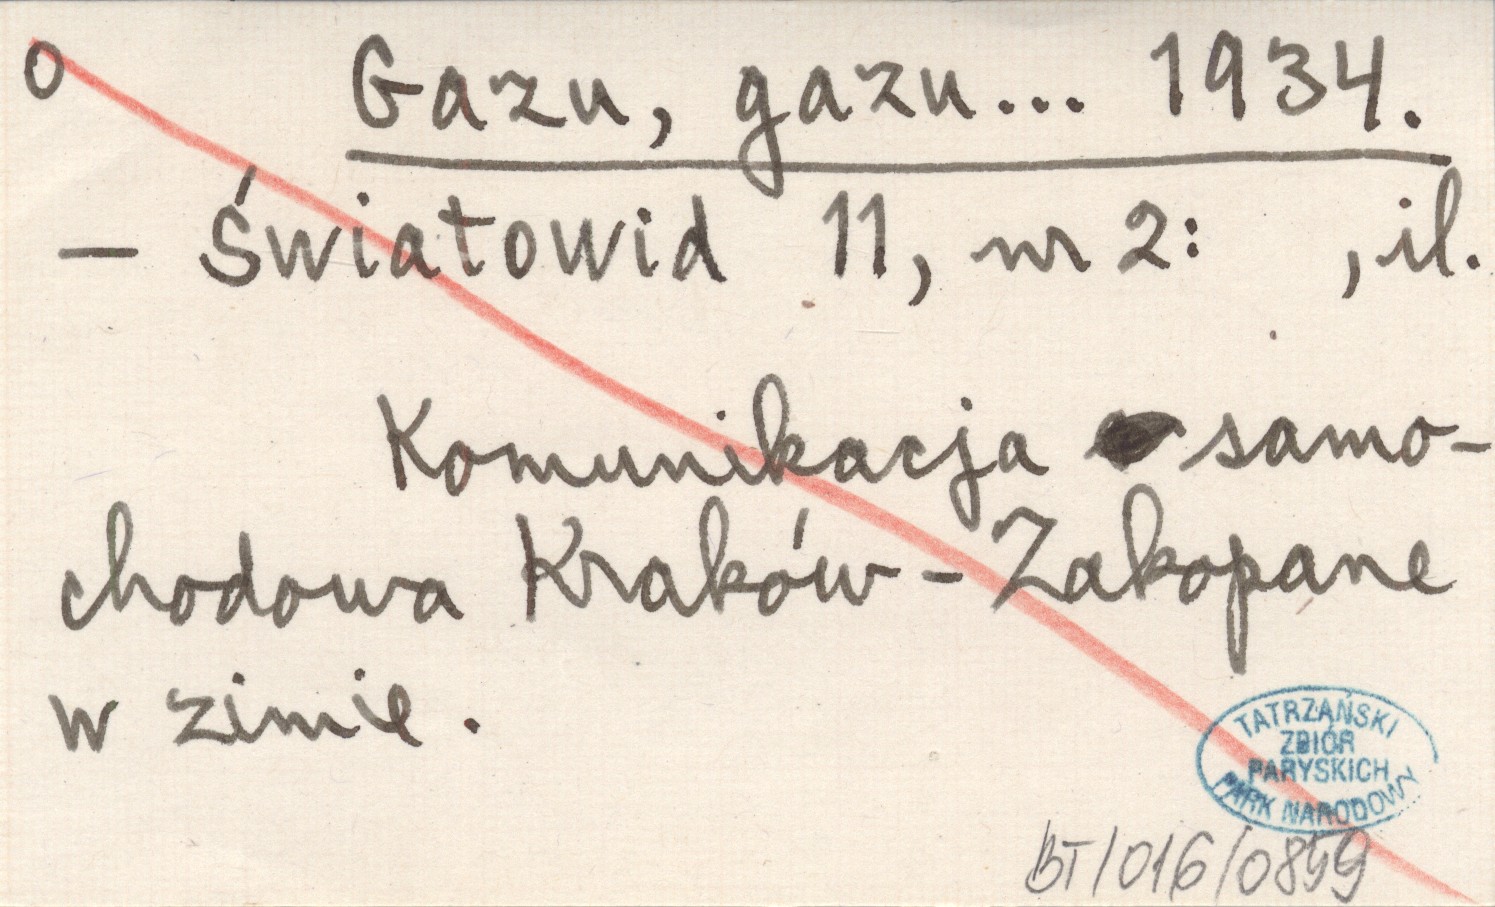 O Gazu, gazu... 1934.
— Światowid 11, nr 2: , il.
Komunikacja samo-
chodowa Kraków - Zakopane
w zimie.
TATRZAŃSKI
ZBIÓR
PARYSKICH
PARK NARODOWY
BT/016/0859